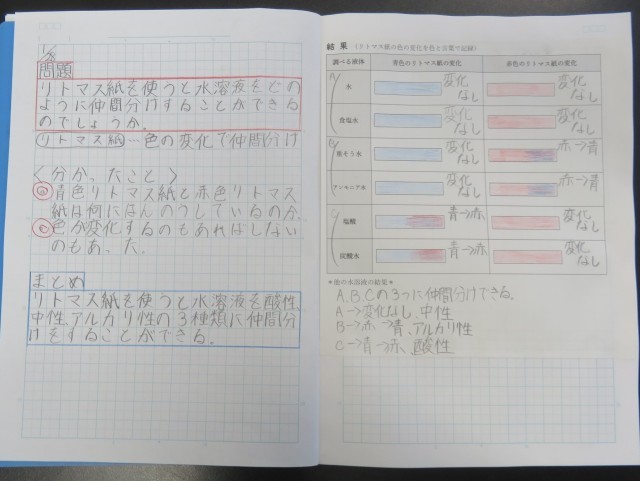 1/8
問題
リトマス紙を使うと水溶液をどの
ように仲間分けすることができる
のでしょうか。
リトマス紙…色の変化で仲間分け
<分かったこと>
◎青色リトマス紙と赤色リトマス
紙は何にはんのうしているのか。
◎色が変化するのもあればしない
のもあった。
まとめ
リトマス紙を使うと水溶液を酸性、
中性、アルカリ性の3種類に仲間分
けをすることができる。
結果(リトマス紙の色の変化を色と言葉で記録)
調べる液体 青色のリトマス紙の変化 赤色のリトマス紙の変化
A 水 変化なし 変化なし
食塩水 変化なし 変化なし
B 重そう水 変化なし 赤→青
アンモニア水 変化なし 赤→青
C 塩酸 青→赤 変化なし
炭酸水 青→赤 変化なし
*他の水溶液の結果*
A,B,Cの3つに仲間分けできる。
A→変化なし、中性
B→赤→青、アルカリ性
C→青→赤、酸性